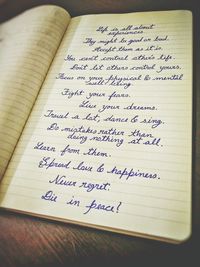 Life is all about
experiences.
They might be good or bad.
Accept them as it is.
You can't control other's life.
Don't let others control yours.
Focus on your physical & mental
well-being.
Fight your fears.
Live your dreams.
Travel a lot, dance & sing.
Do mistakes rather than
doing nothing at all.
Learn from them.
Spread love & happiness.
Never regret.
Die in peace!